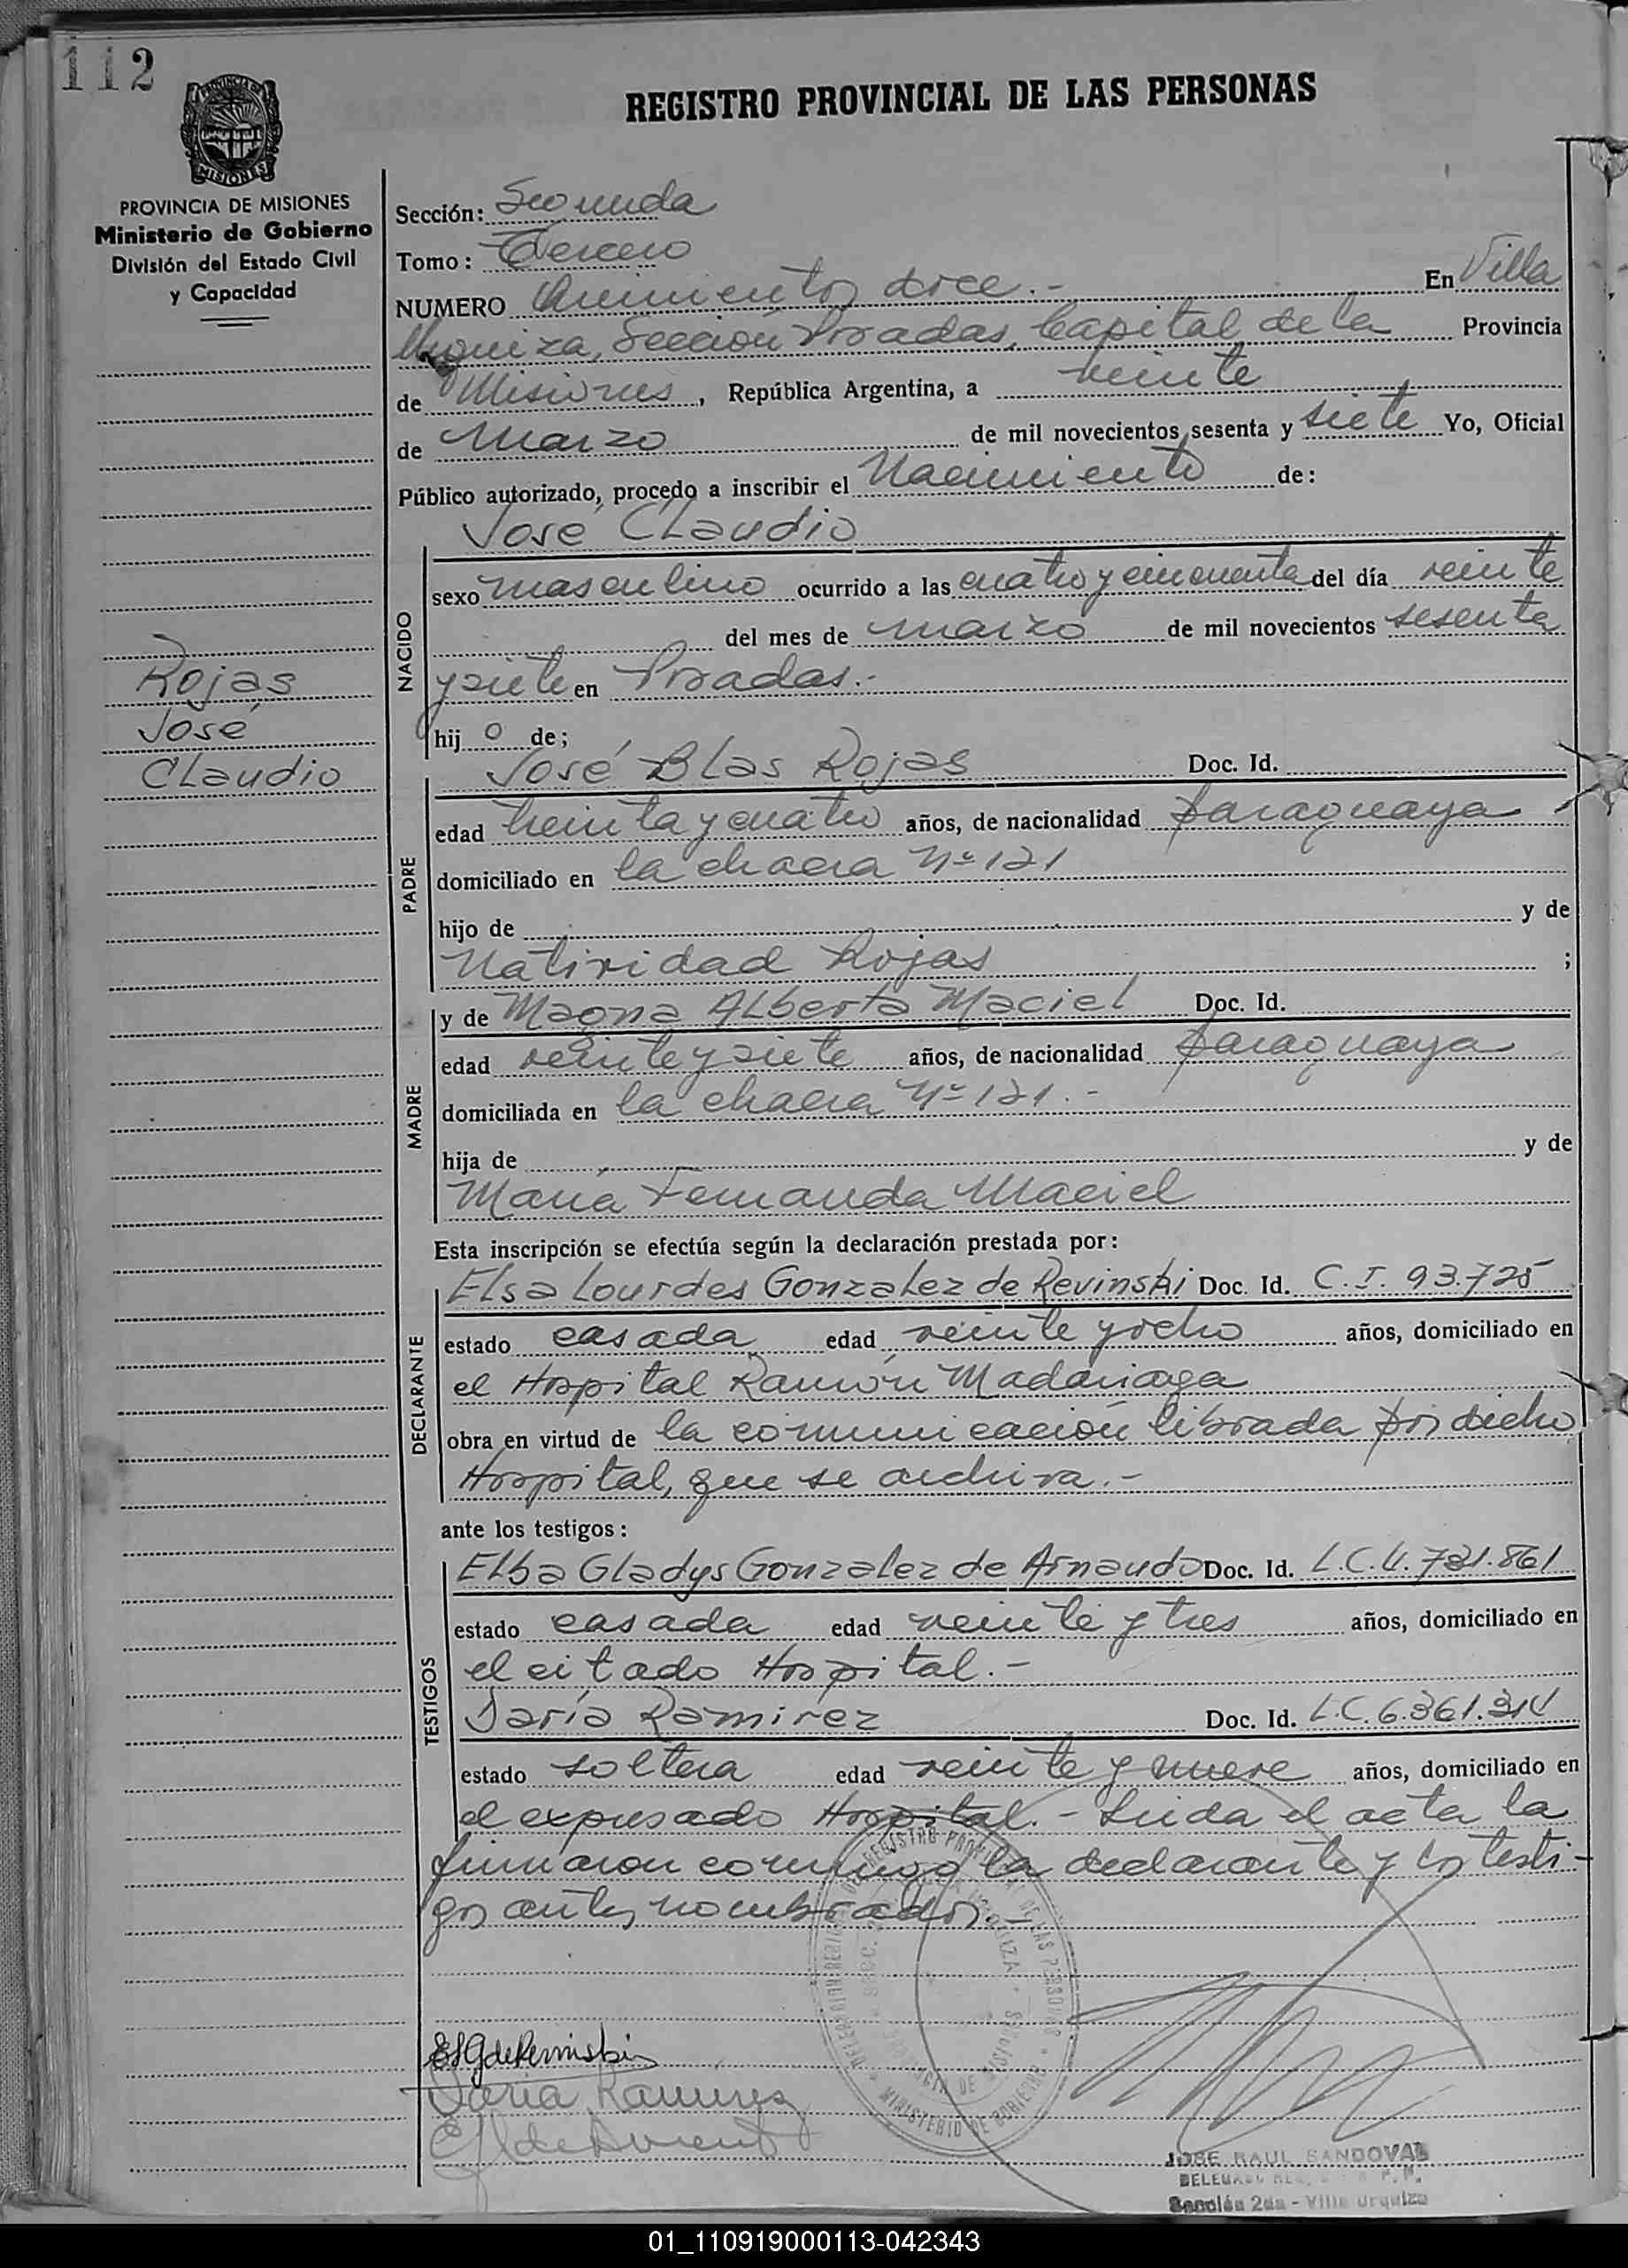 112
REGISTRO PROVINCIAL DE LAS PERSONAS
MISIONES
PROVINCIA DE MISIONES
Ministerio de Gobierno
División del Estado Civil
y Capacidad
Sección: Segunda
Tomo: Tercero
NUMERO Quinientos doce.- En Villa
Urquiza, Sección Posadas, Capital de la Provincia
de Misiones, República Argentina, a veinte
de Marzo de mil novecientos sesenta y siete Yo, Oficial
Público autorizado, procedo a inscribir el Nacimiento de:
José Claudio
NACIDO
sexo masculino ocurrido a las cuatro y cincuenta del día veinte
del mes de marzo de mil novecientos sesenta
y siete en Posadas.-
hij o de;
Rojas
José
Claudio
PADRE
José Blas Rojas Doc. Id.
edad treinta y cuatro años, de nacionalidad paraguaya
domiciliado en la chacra Nº 121
hijo de y de
Natividad Rojas ;
MADRE
y de Magna Alberta Maciel Doc. Id.
edad veinte y siete años, de nacionalidad paraguaya
domiciliada en la chacra Nº 121.-
hija de y de
María Fernanda Maciel
Esta inscripción se efectúa según la declaración prestada por:
DECLARANTE
Elsa Lourdes Gonzalez de Revinski Doc. Id. C.I. 93.725
estado casada edad veinte y ocho años, domiciliado en
el Hospital Ramón Madariaga
obra en virtud de la comunicación librada por dicho
Hospital, que se archiva.-
ante los testigos:
TESTIGOS
Elba Gladys Gonzalez de Arnaudo Doc. Id. L.C. 4.731.861
estado casada edad veinte y tres años, domiciliado en
el citado Hospital.-
Daría Ramirez Doc. Id. L.C. 6.361.314
estado soltera edad veinte y nueve años, domiciliado en
el expresado Hospital.- Leida el acta la
firmaron conmigo la declarante y los testi-
gos antes nombrados.-
Daria Ramirez
JOSE RAUL SANDOVAL
Sección 2da - Villa Urquiza
01_110919000113-042343